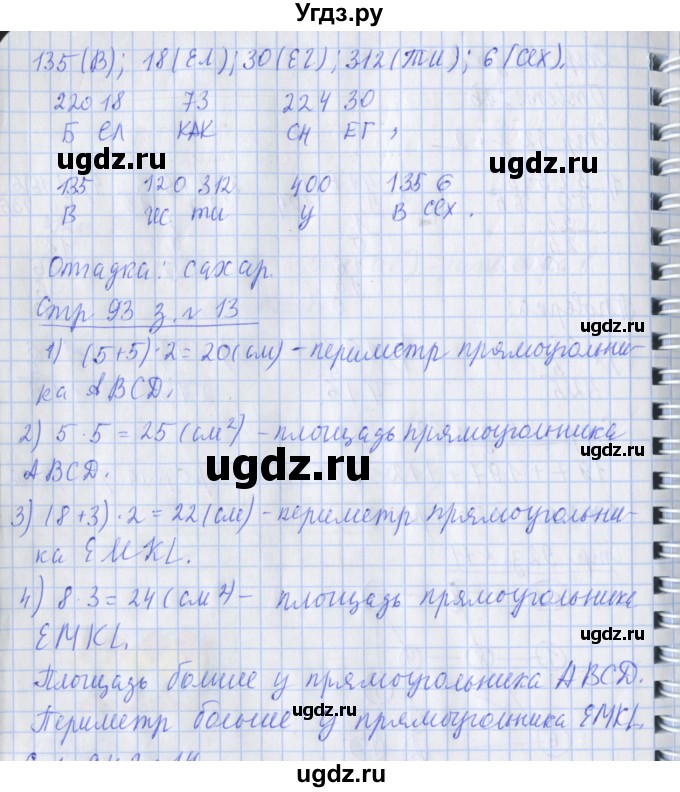 Угдз.ру
135(В); 18(ЕЛ); 30(ЕГ); 312(ТИ); 6(СЕХ).
220 18 73 224 30
Б ЕЛ КАК СН ЕГ,
ugdz.ru
ugdz.ru
135 120 312 400 135 6
В ЧС ТИ У В СЕХ.
Отгадка: сахар.
Стр 93 з. № 13
ugdz.ru
ugdz.ru
1) (5+5)·2=20(см) - периметр прямоугольни-
ка ABCD.
2) 5·5=25(см²) - площадь прямоугольника
ABCD.
ugdz.ru
ugdz.ru
3) (8+3)·2=22(см) - периметр прямоугольни-
ка EMKL.
4) 8·3=24(см²) - площадь прямоугольника
EMKL.
ugdz.ru
ugdz.ru
Площадь больше у прямоугольника ABCD.
Периметр больше у прямоугольника EMKL.
ugdz.ru
ugdz.ru